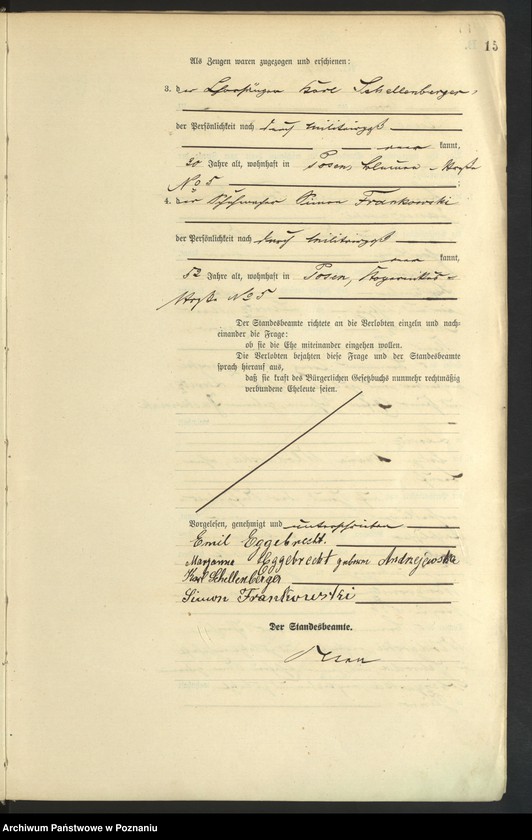 15
Als Zeugen waren zugezogen und erschienen:
3. der Karl Schellenberger,
der Persönlichkeit nach durch Militärpaß
kannt,
20 Jahre alt, wohnhaft in Posen, Straße
No 5
4. der Schuhmacher Simon Frankowski
der Persönlichkeit nach durch Militärpaß
kannt,
52 Jahre alt, wohnhaft in Posen,
Straße No 5
Der Standesbeamte richtete an die Verlobten einzeln und nach-
einander die Frage:
ob sie die Ehe miteinander eingehen wollen.
Die Verlobten bejahten diese Frage und der Standesbeamte
sprach hierauf aus,
daß sie kraft des Bürgerlichen Gesetzbuchs nunmehr rechtmäßig
verbundene Eheleute seien.
Vorgelesen, genehmigt und unterschrieben
Emil Eggebrecht.
Maryanna Eggebrecht geborne Andrzejewska
Karl Schellenberger
Simon Frankowski
Der Standesbeamte.
Archiwum Państwowe w Poznaniu